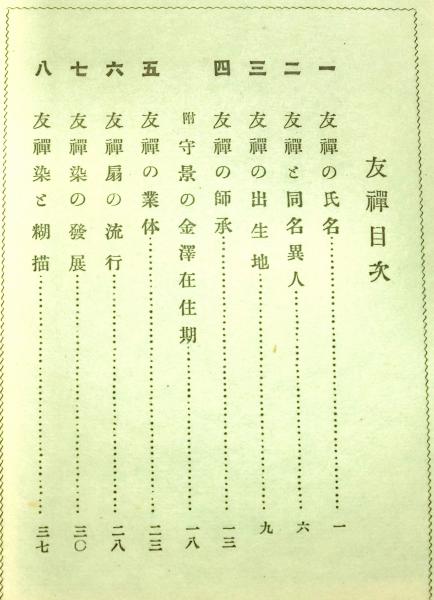 友禪目次
一 友禪の氏名……………一
二 友禪と同名異人……………六
三 友禪の出生地……………九
四 友禪の師承……………一三
附 守景の金澤在住期……………一八
五 友禪の業体……………二三
六 友禪扇の流行……………二八
七 友禪染の發展……………三〇
八 友禪染と糊描……………三七